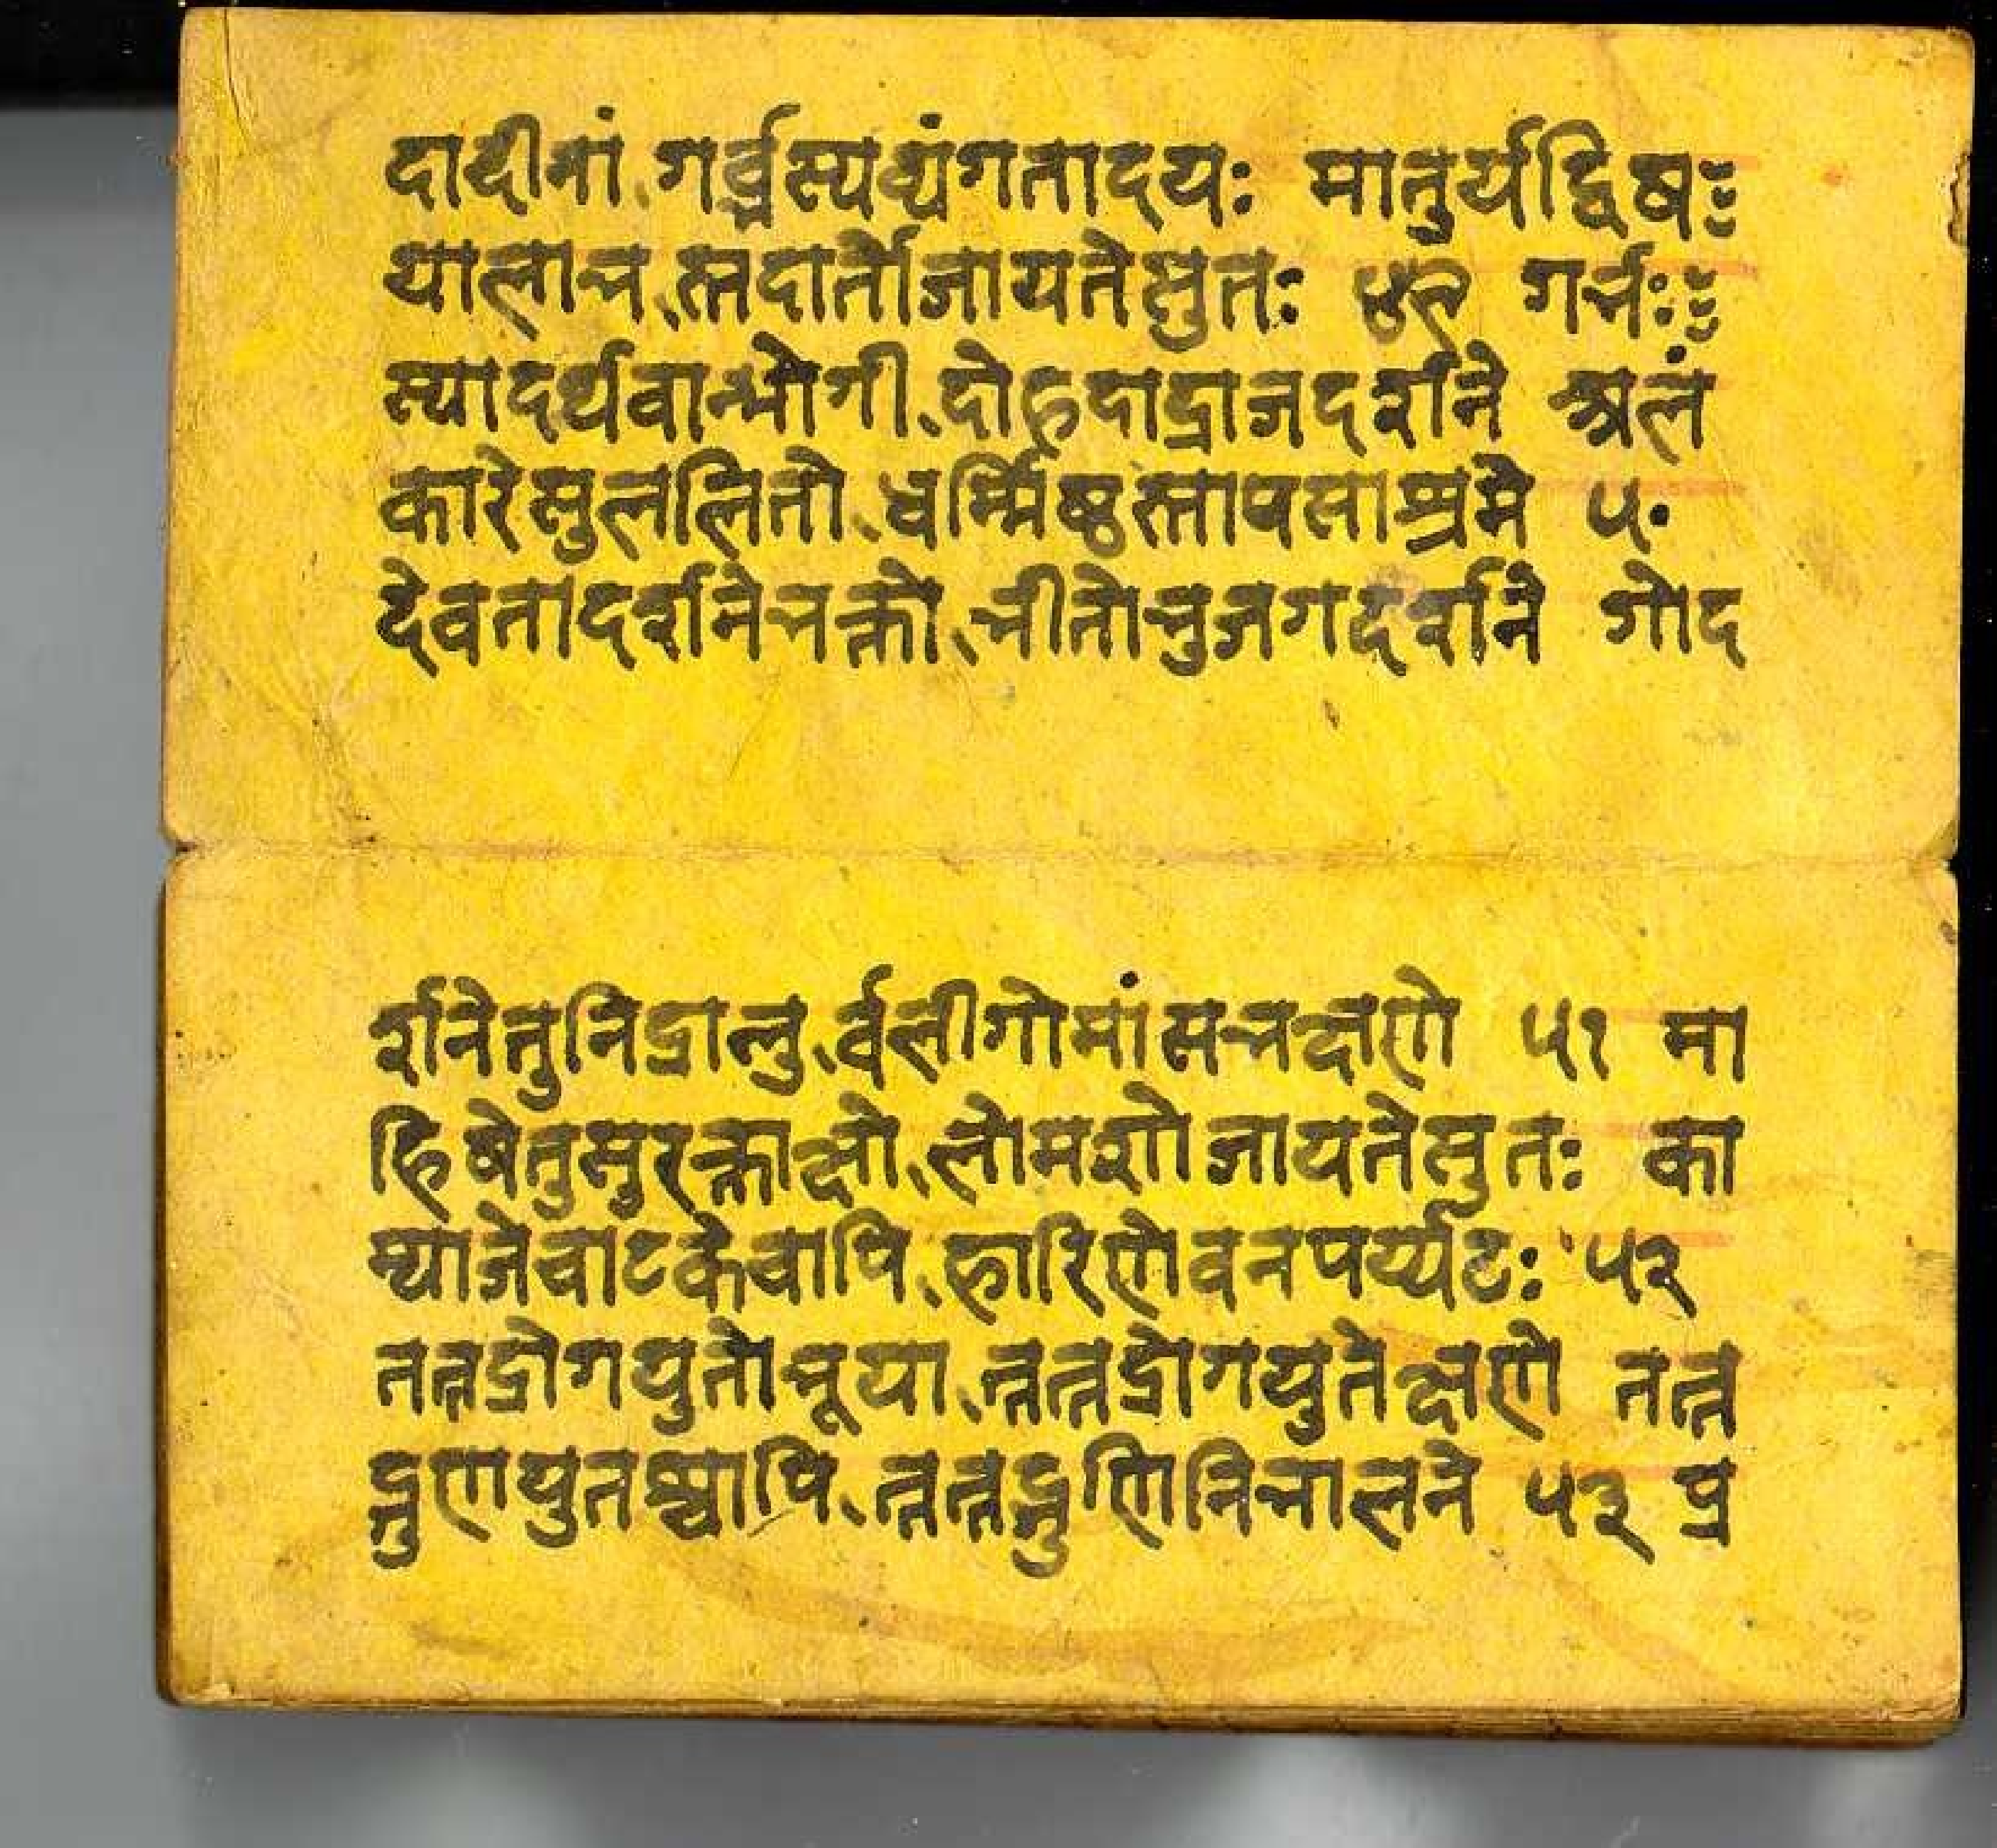 दाद्यीनां गर्व्वस्यद्यंगतादयः मातुर्यद्विष
यालाभ स्तदार्तोजायतेसुतः ४९ गर्भः
स्यादर्थवान्भोगी दोहदाद्राजदर्शने अलं
कारेसुललितो धर्म्मिष्ठस्तापसाश्रमे ५०
देवतादर्शनेभक्तो भीतोभुजगदर्शने गोद
र्शनेतुनिद्रालु र्वलीगोमांसभक्षणे ५१ मा
हिषेतुसुरक्ताक्षो लोमशोजायतेसुतः का
म्याजेवाटकेवापि हारिणेवनपर्य्यटः ५२
तत्तद्रोगयुतोभूया त्तत्तद्रोगयुतेक्षणे तत्त
द्गुणयुतश्चापि त्तत्तद्गुणिनिभालने ५३ प्र